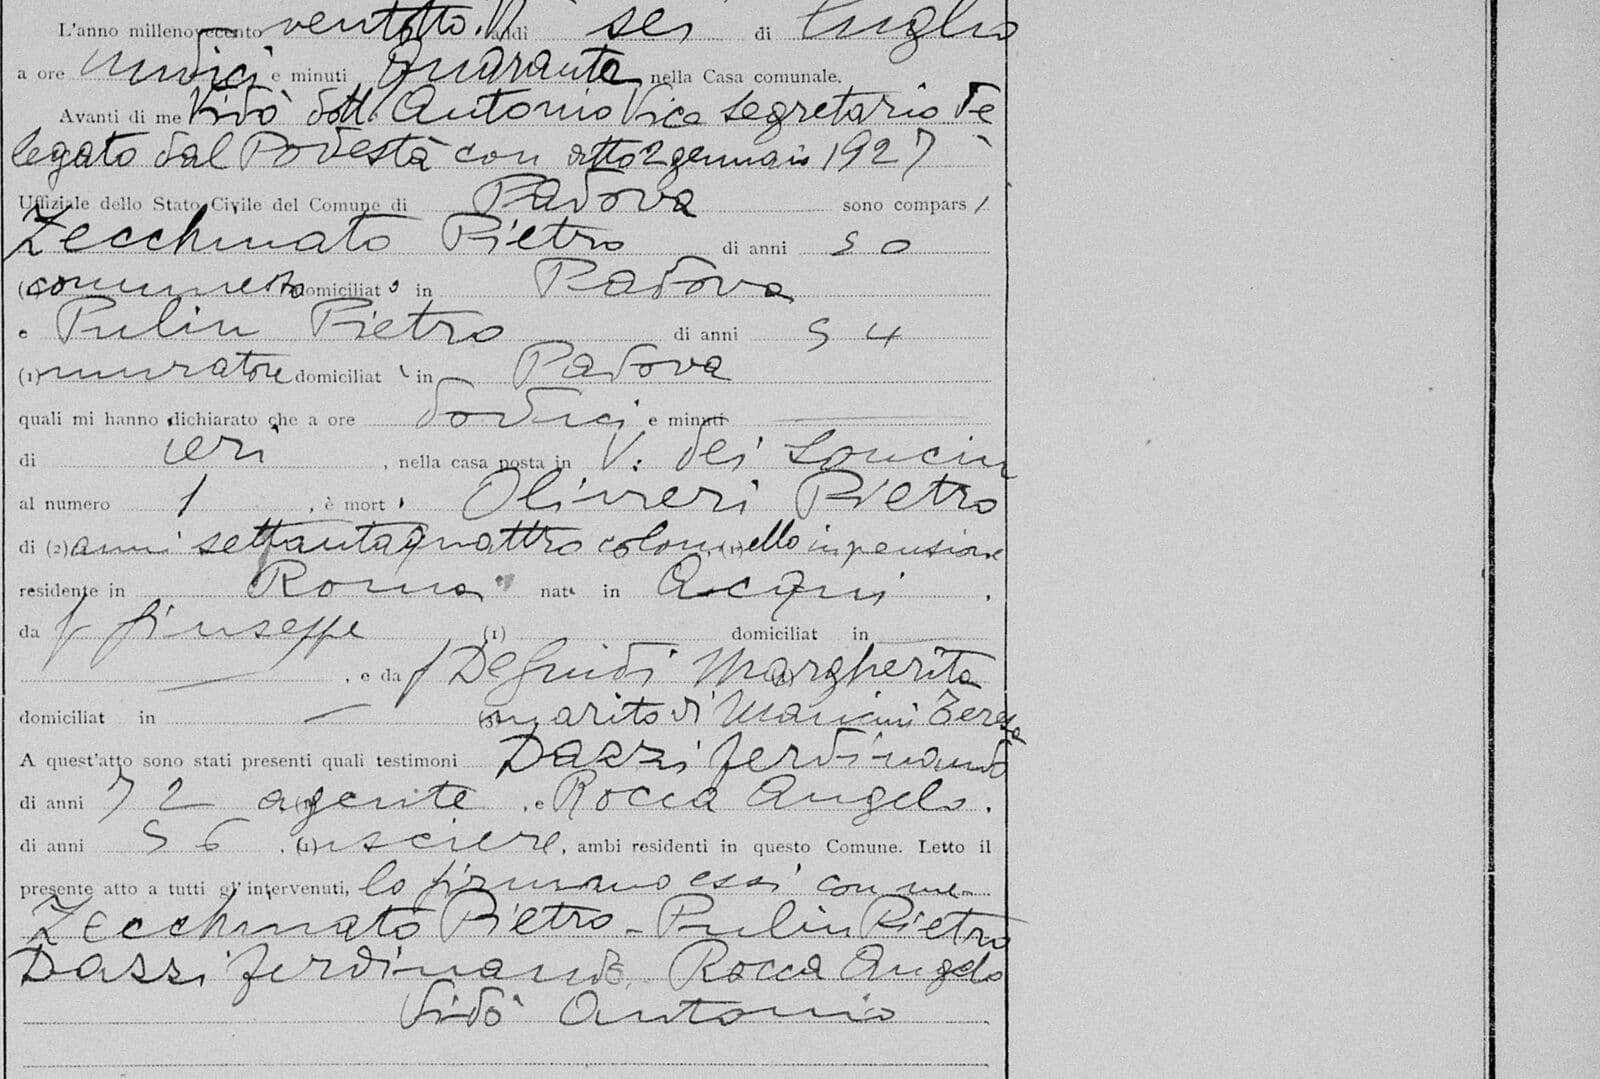 L'anno millenovecento ventotto, addì sei di Luglio
a ore undici e minuti Quaranta nella Casa comunale.
Avanti di me Vidò dott. Antonio Vice segretario de
legato dal Podestà con atto 2 gennaio 1927
Uffiziale dello Stato Civile del Comune di Padova sono compars i
Zecchinato Pietro di anni 50
(1) commesso domiciliato in Padova
e Pulin Pietro di anni 54
(1) muratore domiciliat in Padova
quali mi hanno dichiarato che a ore dodici e minuti
di ieri, nella casa posta in V. dei Soncin
al numero 1, è mort Olivieri Pietro
di (2) anni settantaquattro colonnello in pensione
residente in Roma nat in Acqui
da f Giuseppe (1) domiciliat in
, e da f De Guidi Margherita
domiciliat in (3) marito di Mancini Teresa
A quest'atto sono stati presenti quali testimoni Dazzi Ferdinando
di anni 72 agente, e Rocca Angelo.
di anni 56, (1) usciere, ambi residenti in questo Comune. Letto il
presente atto a tutti gl'intervenuti, lo firmano essi con me
Zecchinato Pietro - Pulin Pietro
Dazzi Ferdinando Rocca Angelo
Vidò Antonio